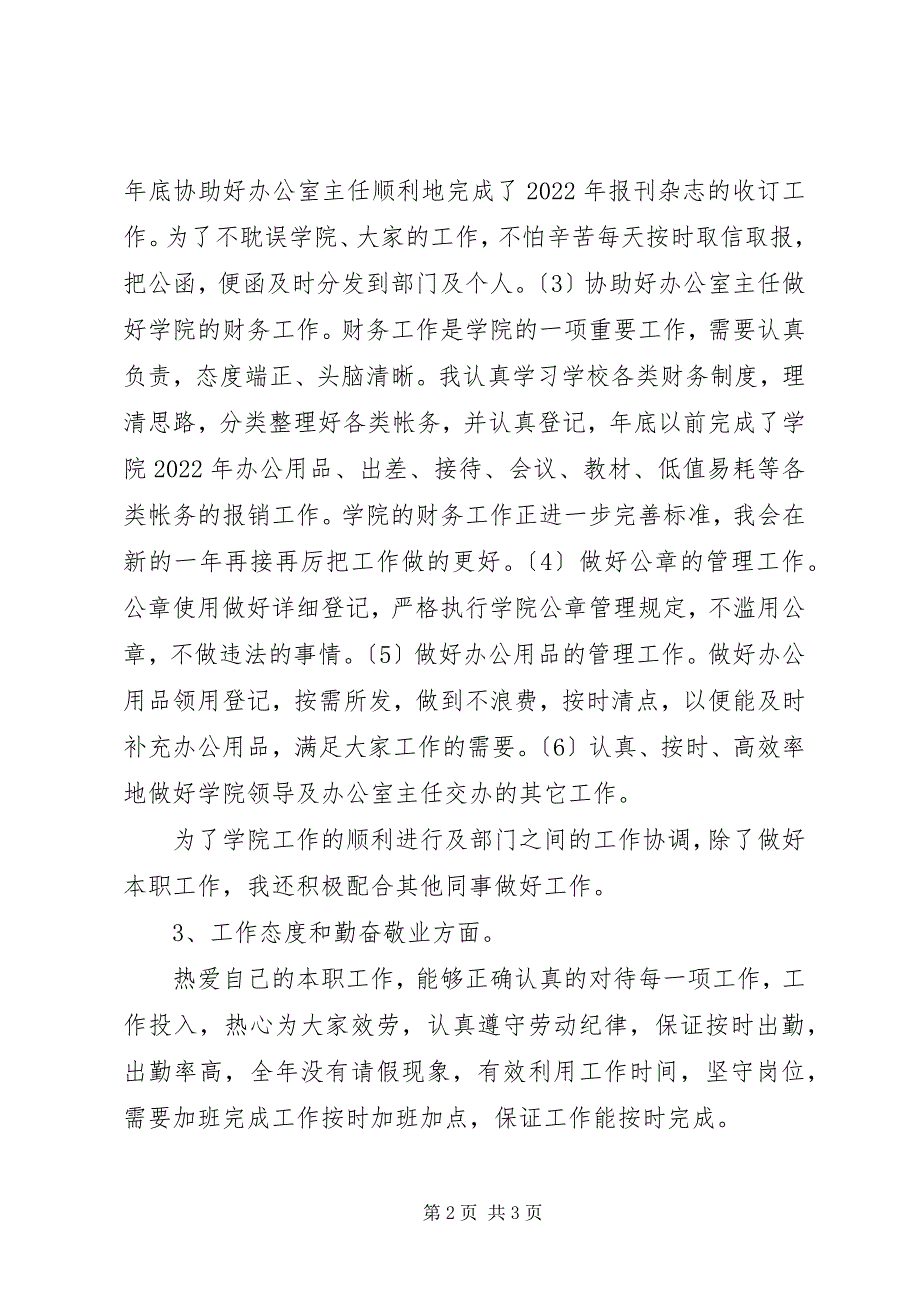 年底协助好办公室主任顺利地完成了 2022 年报刊杂志的收订工
作。为了不耽误学院、大家的工作，不怕辛苦每天按时取信取报，
把公函，便函及时分发到部门及个人。〔3〕协助好办公室主任做
好学院的财务工作。财务工作是学院的一项重要工作，需要认真
负责，态度端正、头脑清晰。我认真学习学校各类财务制度，理
清思路，分类整理好各类帐务，并认真登记，年底以前完成了学
院 2022 年办公用品、出差、接待、会议、教材、低值易耗等各
类帐务的报销工作。学院的财务工作正进一步完善标准，我会在
新的一年再接再厉把工作做的更好。〔4〕做好公章的管理工作。
公章使用做好详细登记，严格执行学院公章管理规定，不滥用公
章，不做违法的事情。〔5〕做好办公用品的管理工作。做好办公
用品领用登记，按需所发，做到不浪费，按时清点，以便能及时
补充办公用品，满足大家工作的需要。〔6〕认真、按时、高效率
地做好学院领导及办公室主任交办的其它工作。
为了学院工作的顺利进行及部门之间的工作协调，除了做好
本职工作，我还积极配合其他同事做好工作。
3、工作态度和勤奋敬业方面。
热爱自己的本职工作，能够正确认真的对待每一项工作，工
作投入，热心为大家效劳，认真遵守劳动纪律，保证按时出勤，
出勤率高，全年没有请假现象，有效利用工作时间，坚守岗位，
需要加班完成工作按时加班加点，保证工作能按时完成。
第 2 页 共 3 页